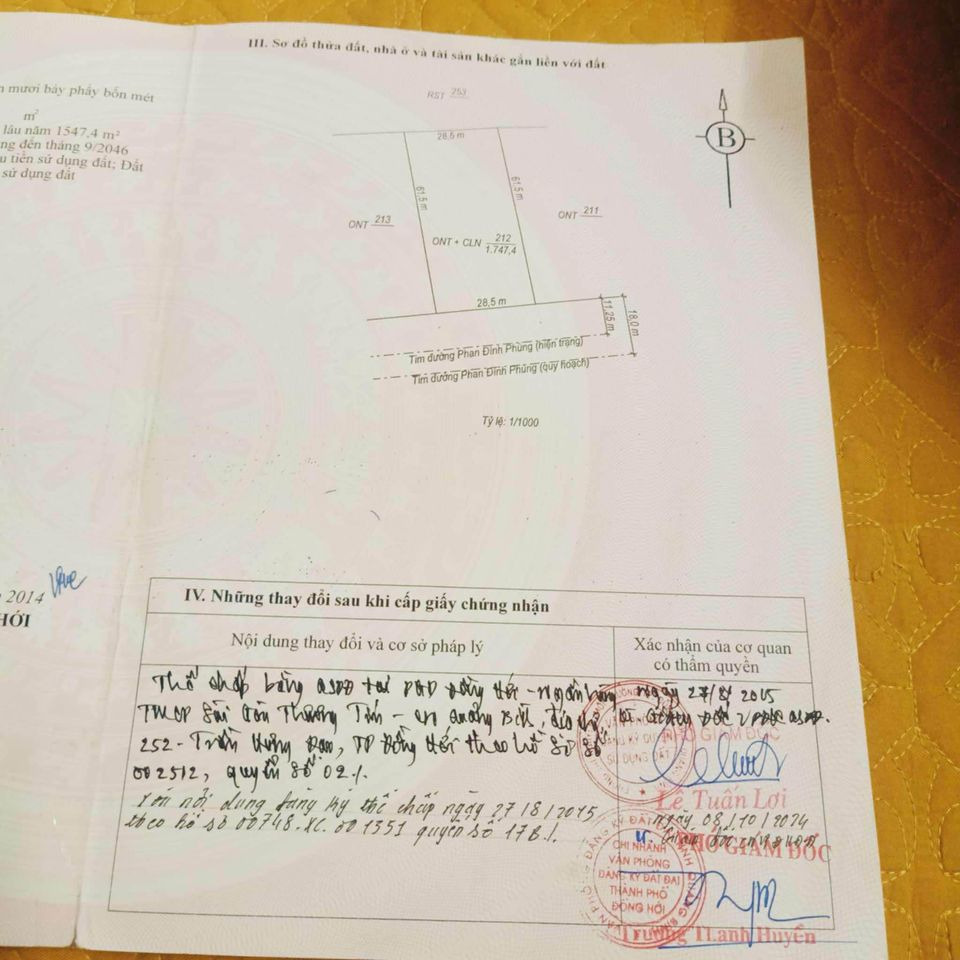 n mươi bảy phẩy bốn mét
m²
lâu năm 1547,4 m²
ng đến tháng 9/2046
u tiền sử dụng đất; Đất
sử dụng đất
2014
HỚI
III. Sơ đồ thửa đất, nhà ở và tài sản khác gắn liền với đất
RST 253
28,5 m
61,5 m
61,5 m
ONT 213
ONT 211
ONT + CLN 212
1.747,4
B
28,5 m
11,25 m
18,0 m
Tim đường Phan Đình Phùng (hiện trạng)
Tim đường Phan Đình Phùng (quy hoạch)
Tỷ lệ: 1/1000
IV. Những thay đổi sau khi cấp giấy chứng nhận
Nội dung thay đổi và cơ sở pháp lý
Xác nhận của cơ quan
có thẩm quyền
Thế chấp bằng QSDĐ tại PGD Đồng Hới - Ngân hàng
TMCP Sài Gòn Thương Tín - CN Quảng Bình, địa chỉ
252 - Trần Hưng Đạo, TP Đồng Hới theo hồ sơ số
002512, quyển số 02.
Xóa nội dung đăng ký thế chấp ngày 27/8/2015
theo hồ sơ 00748.XC.001351 quyển số 17B.
ngày 27/8/2015
PHÓ GIÁM ĐỐC
Lê Tuấn Lợi
ngày 08/10/2024
PHÓ GIÁM ĐỐC
CHI NHÁNH
VĂN PHÒNG
ĐĂNG KÝ ĐẤT ĐAI
THÀNH PHỐ
ĐỒNG HỚI
Trương Thanh Huyền